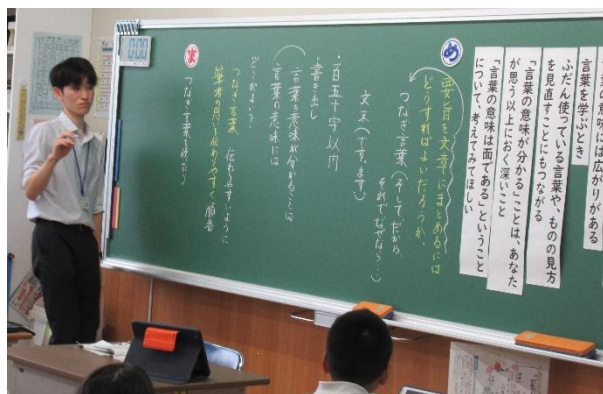 言葉の意味には広がりがある
言葉を学ぶとき
ふだん使っている言葉や、ものの見方
を見直すことにもつながる
「言葉の意味が分かる」ことは、あなた
が思う以上におく深いこと
「言葉の意味は面である」ということ
について、考えてみてほしい
め
要旨を文章にまとめるには
どうすればよいだろうか。
つなぎ言葉(そして、だから
それで、なぜなら…)
文末(です、ます)
・百五十字以内
・書き出し
言葉の意味が分かることは
言葉の意味には
どこがよい?
つなぎ言葉 伝わりやすいように
筆者の思いを伝わりやすく 順番
ま
つなぎ言葉を使ったり